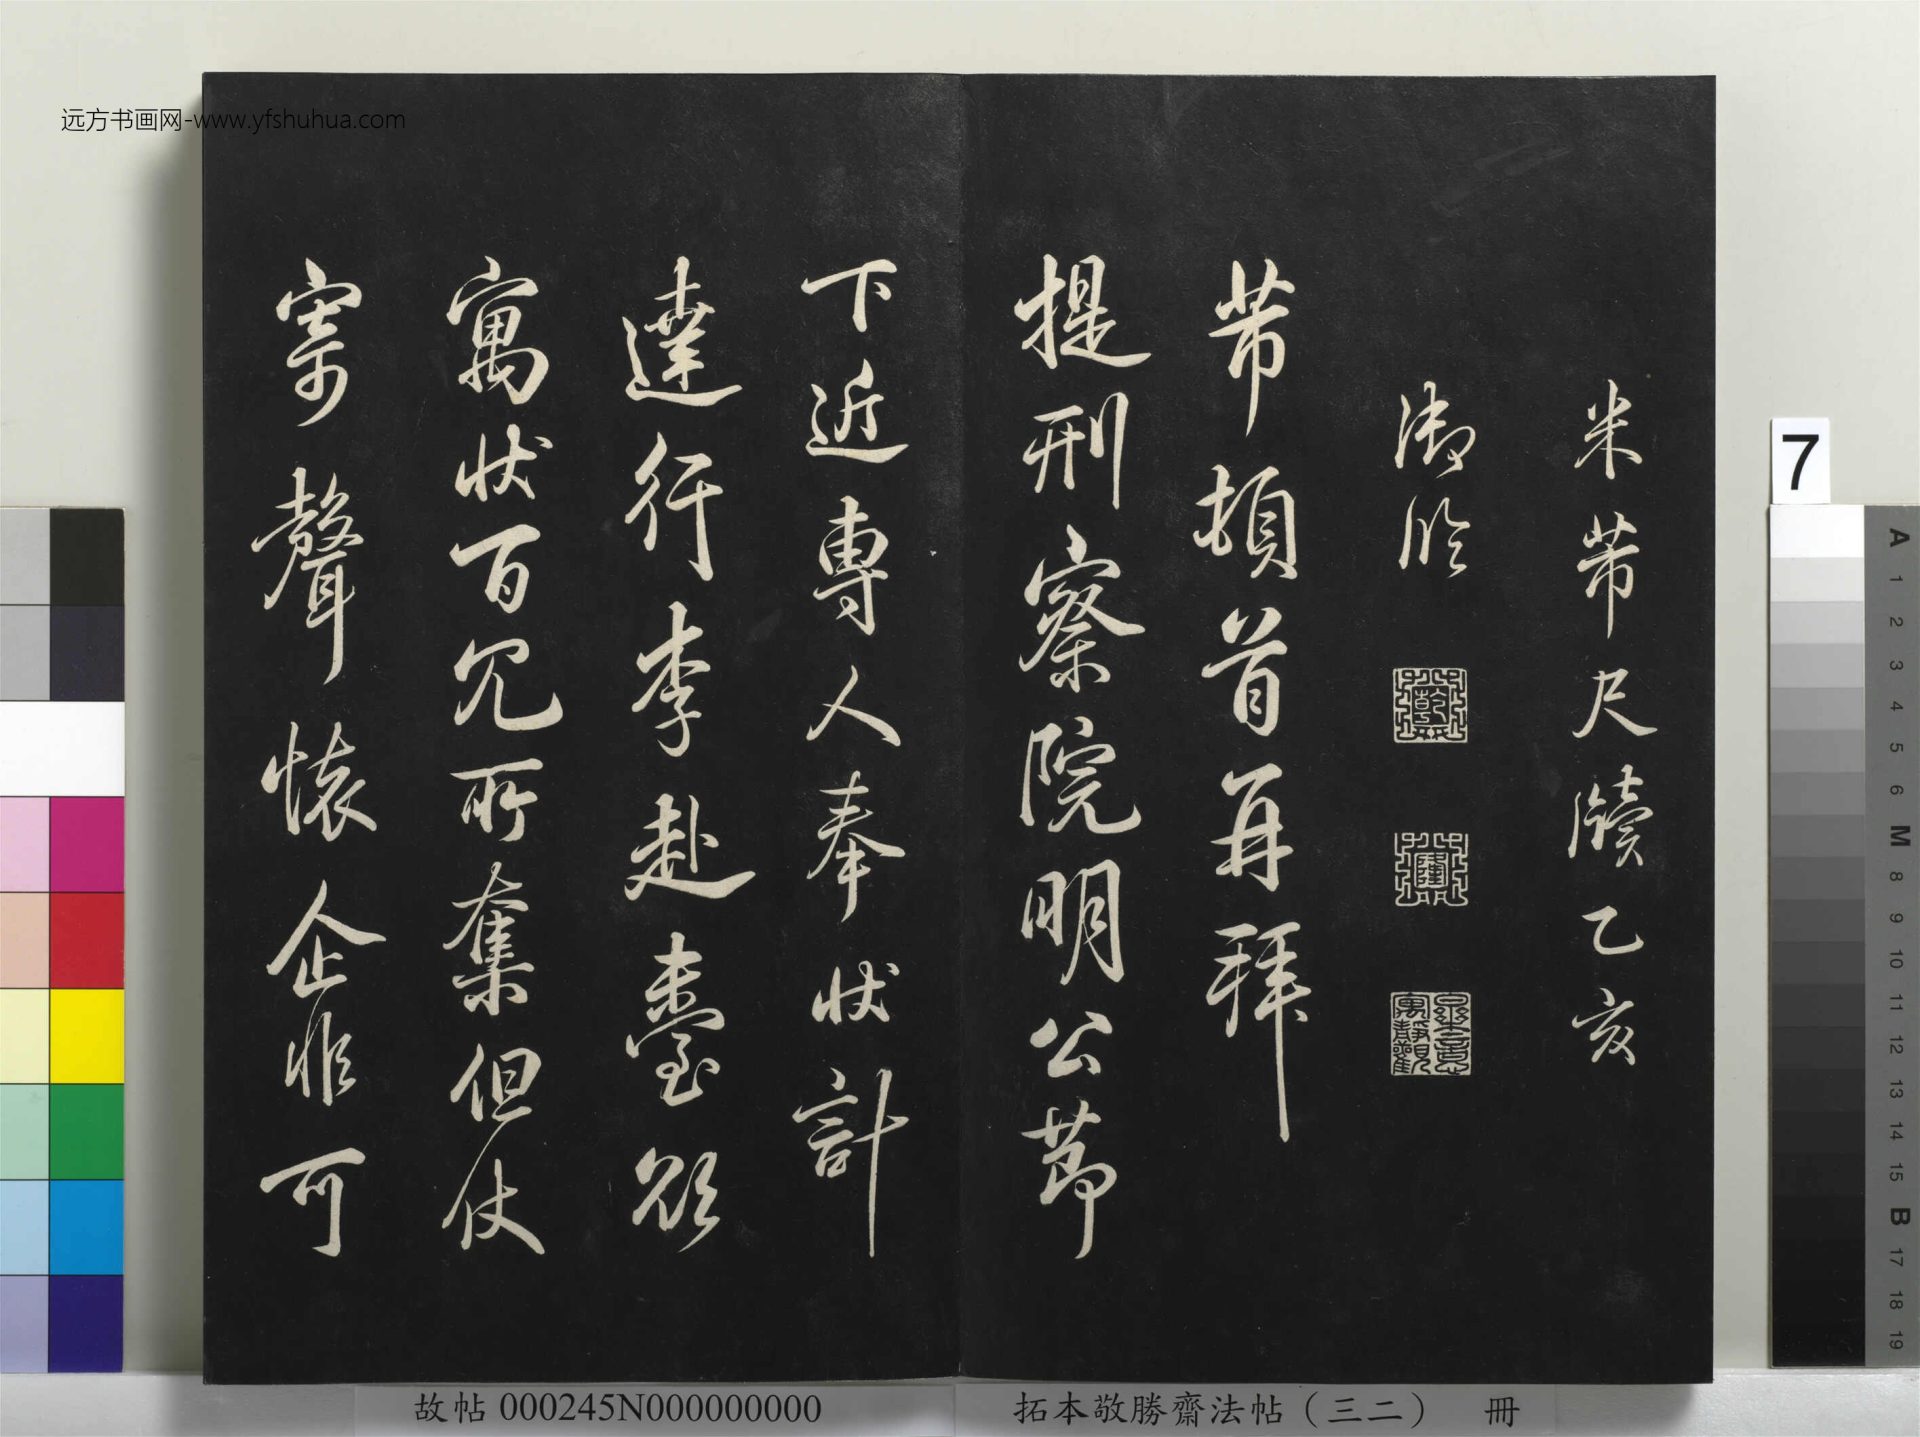 远方书画网-www.yfshuhua.com
米芾尺牘乙亥
御臨
乾
隆
芾頓首再拜
提刑察院明公節
下近專人奉狀計
達行李赴臺欲
寓狀百冗所奪但仗
寄聲懷企非可
故帖 000245N000000000
拓本敬勝齋法帖（三二） 冊
7
A
1
2
3
4
5
6
M
8
9
10
11
12
13
14
15
B
17
18
19